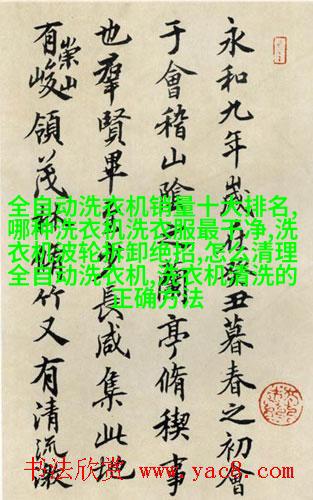 永和九年歲在癸丑暮春之初會
于會稽山陰之蘭亭脩稧事
也羣賢畢至少長咸集此地
有崇山峻領茂林脩竹又有清流激
全自动洗衣机销量十大排名,
哪种洗衣机洗衣服最干净,洗
衣机波轮拆卸绝招,怎么清理
全自动洗衣机,洗衣机清洗的
正确方法
书法欣赏 www.yac8.com